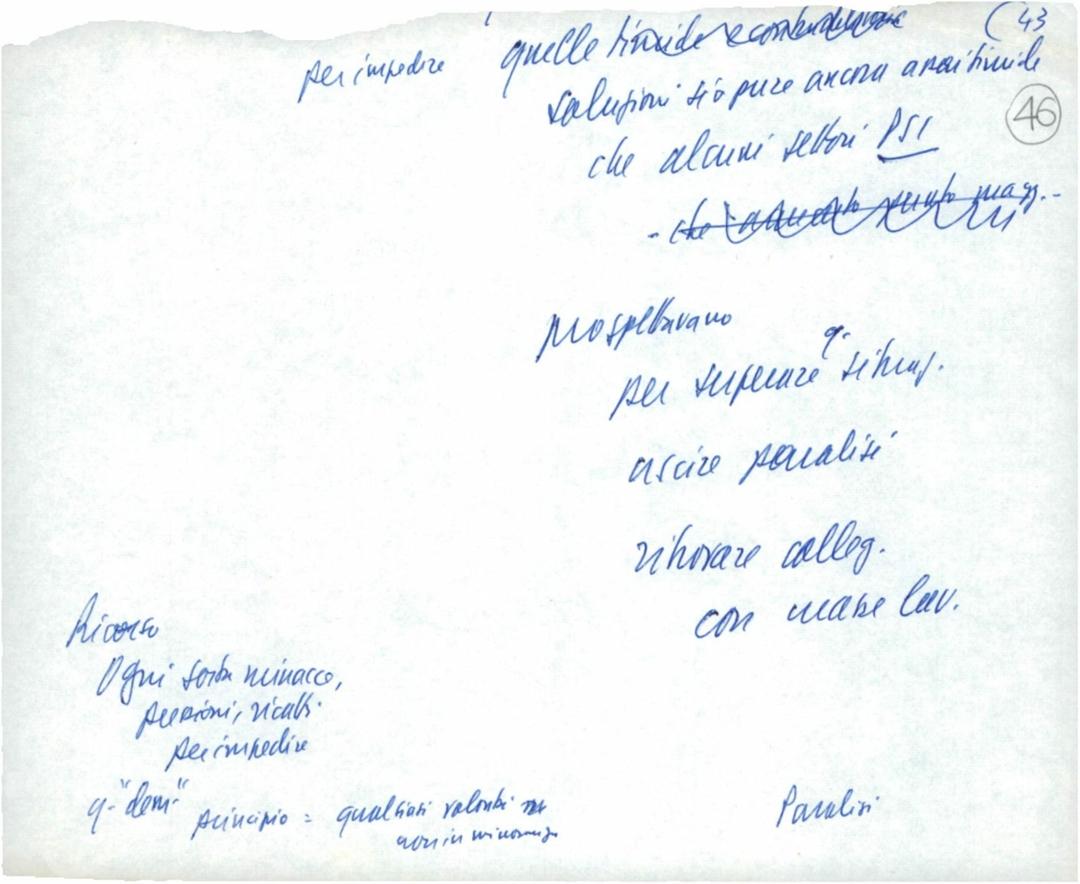 (43
46
per impedire quelle timide
soluzioni sia pure ancora timide
che alcuni settori PSI
prospettavano
per superare q. situaz.
uscire paralisi
ritrovare colleg.
con masse lav.
Ricorso
Ogni sorta minacce,
pressioni, ricatti
per impedire
q. "dem"
principio = qualsiasi volontà
non in minoranza
Paralisi